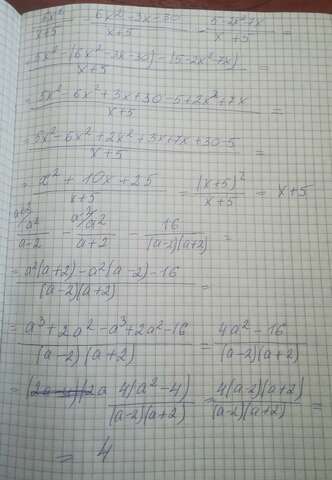 5x²/x+5 - 6x²-3x-30/x+5 - 5-2x²-7x/x+5 =
= 5x²-(6x²-3x-30)-(5-2x²-7x)/x+5 =
= 5x²-6x²+3x+30-5+2x²+7x/x+5 =
= 5x²-6x²+2x²+3x+7x+30-5/x+5 =
= x²+10x+25/x+5 = (x+5)²/x+5 = x+5
a+2/a²/a-2 - a-2/a²/a+2 - 16/(a-2)(a+2) =
= a²(a+2)-a²(a-2)-16/(a-2)(a+2) =
= a³+2a²-a³+2a²-16/(a-2)(a+2) = 4a²-16/(a-2)(a+2)
= 4(a²-4)/(a-2)(a+2) = 4(a-2)(a+2)/(a-2)(a+2) =
= 4